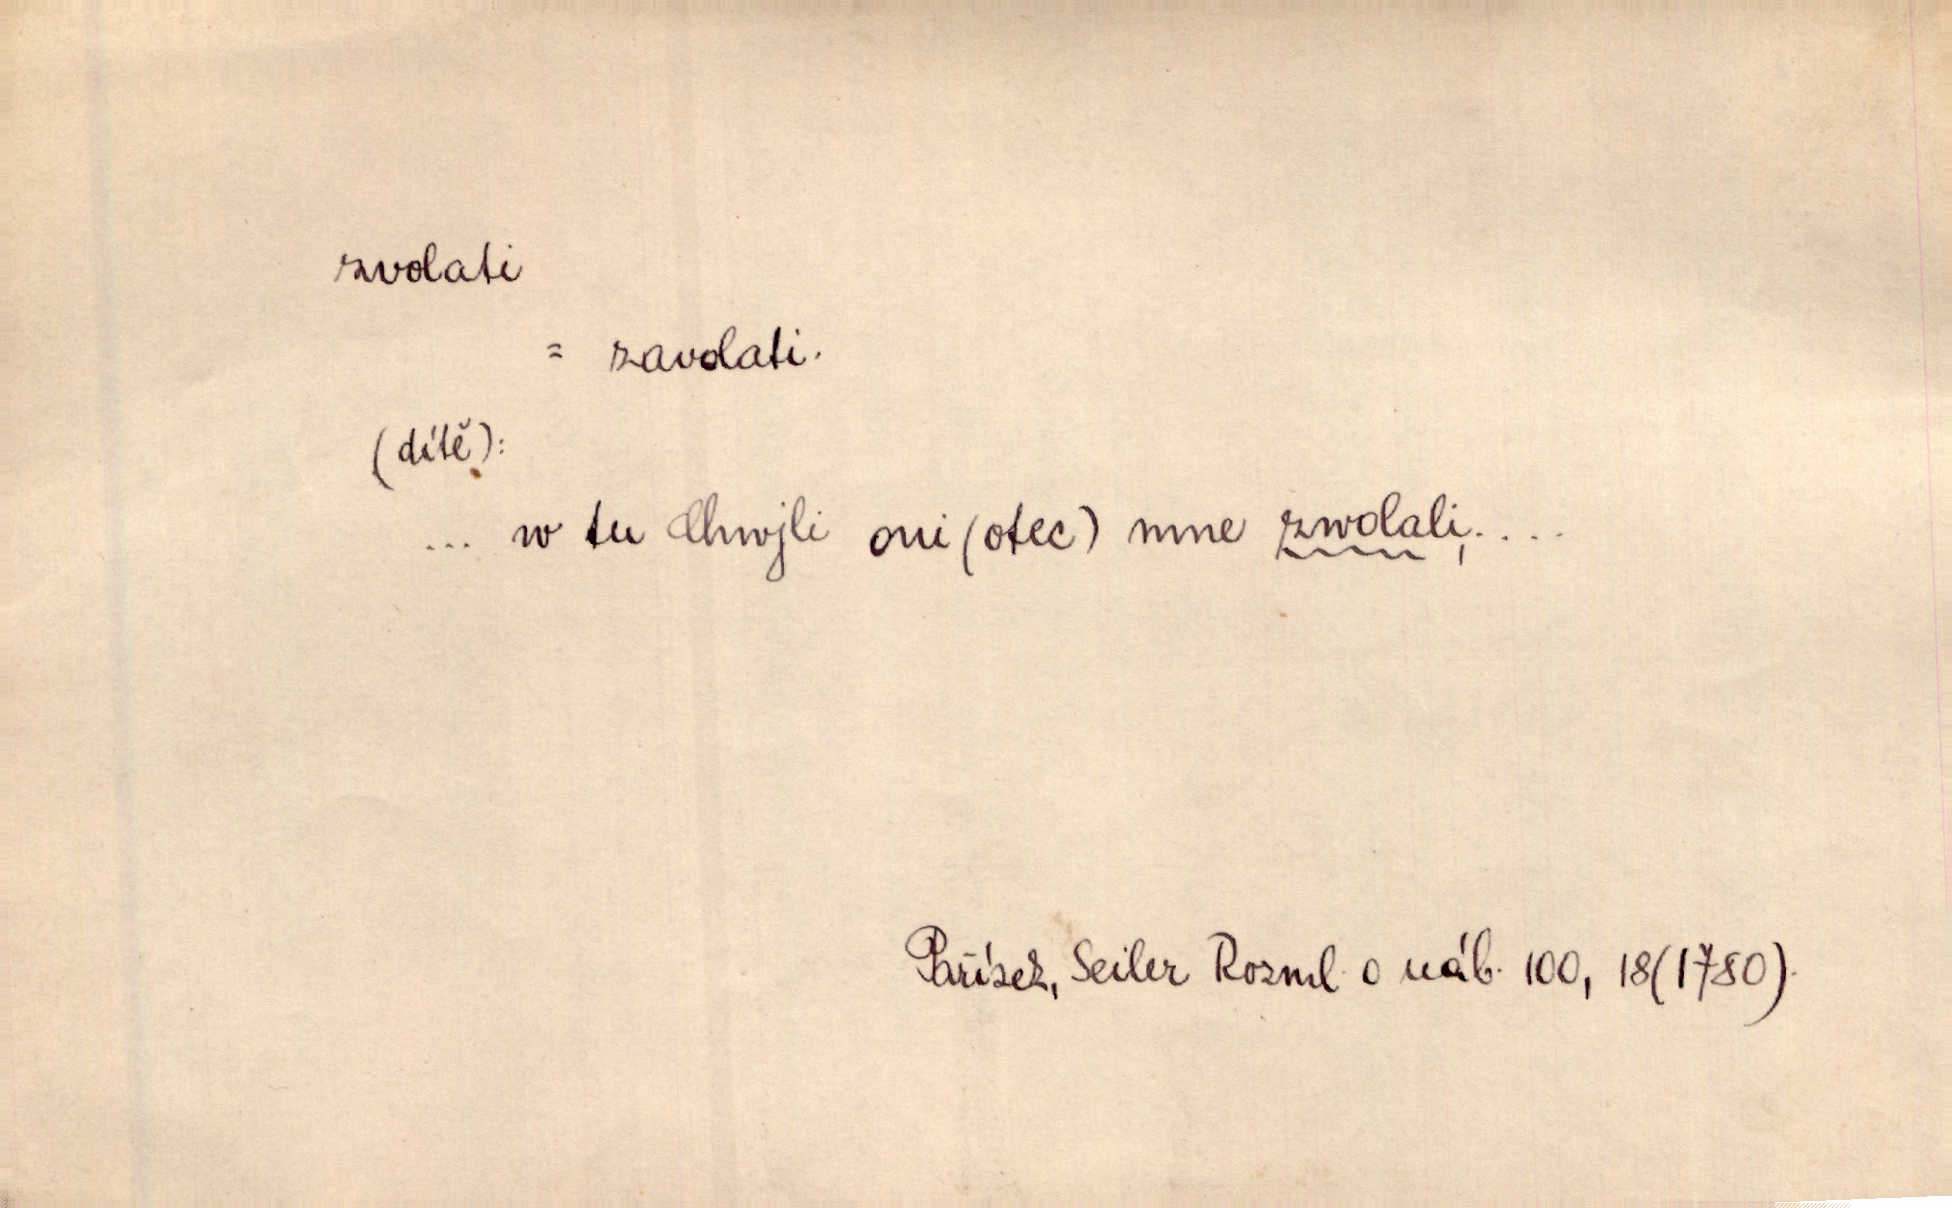 zvolati
= zavolati.
(dítě):
... w tu Chwjli oni (otec) mne zwolali, ....
Pařízek, Seiler Rozml. o náb. 100, 18 (1780).